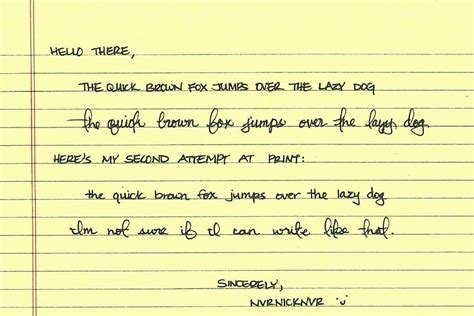 HELLO THERE,
THE QUICK BROWN FOX JUMPS OVER THE LAZY DOG
the quick brown fox jumps over the lazy dog.
HERE'S MY SECOND ATTEMPT AT PRINT:
the quick brown fox jumps over the lazy dog.
I'm not sure if I can write like that.
SINCERELY,
NVRNICKNVR ·ں·